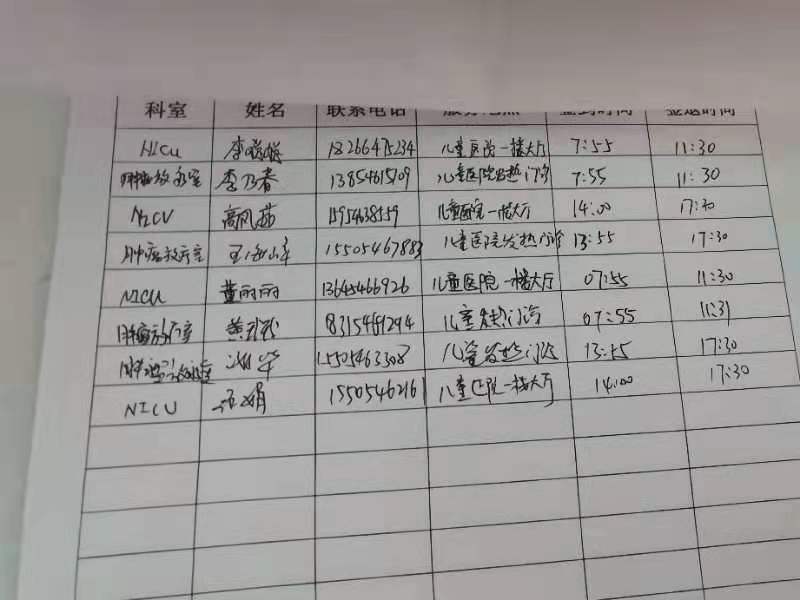 科室 姓名 联系电话 服务地点 签到时间 签退时间
NICU 李 18266475234 儿童医院一楼大厅 7:55 11:30
肿瘤放疗室 李乃春 儿童医院发热门诊 7:55 11:30
NICU 高凤茹 15954638559 儿童医院一楼大厅 14:00 17:30
肿瘤放疗室 王海军 15505467883 儿童医院发热门诊 13:55 17:30
NICU 董丽丽 13645466926 儿童医院一楼大厅 07:55 11:30
肿瘤放疗室 8315469294 儿童发热门诊 07:55 11:31
儿童发热门诊 17:30
NICU 儿童医院一楼大厅 14:00 17:30